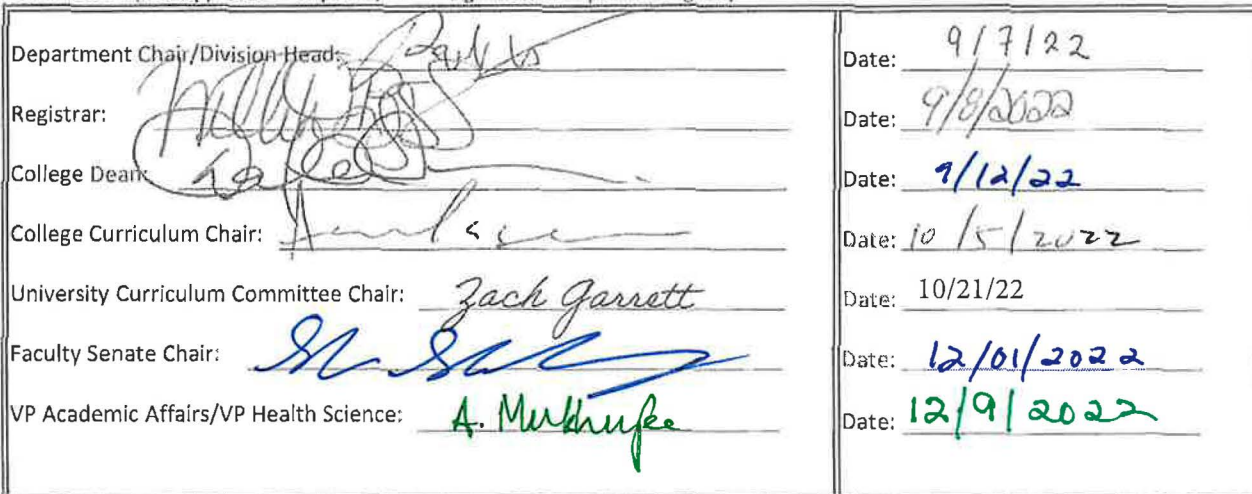 Department Chair/Division Head: Date: 9/7/22
Registrar: Date: 9/8/2022
College Dean: Date: 9/12/22
College Curriculum Chair: Date: 10/5/2022
University Curriculum Committee Chair: Zach Garrett Date: 10/21/22
Faculty Senate Chair: Date: 12/01/2022
VP Academic Affairs/VP Health Science: A. Mukherjee Date: 12/9/2022